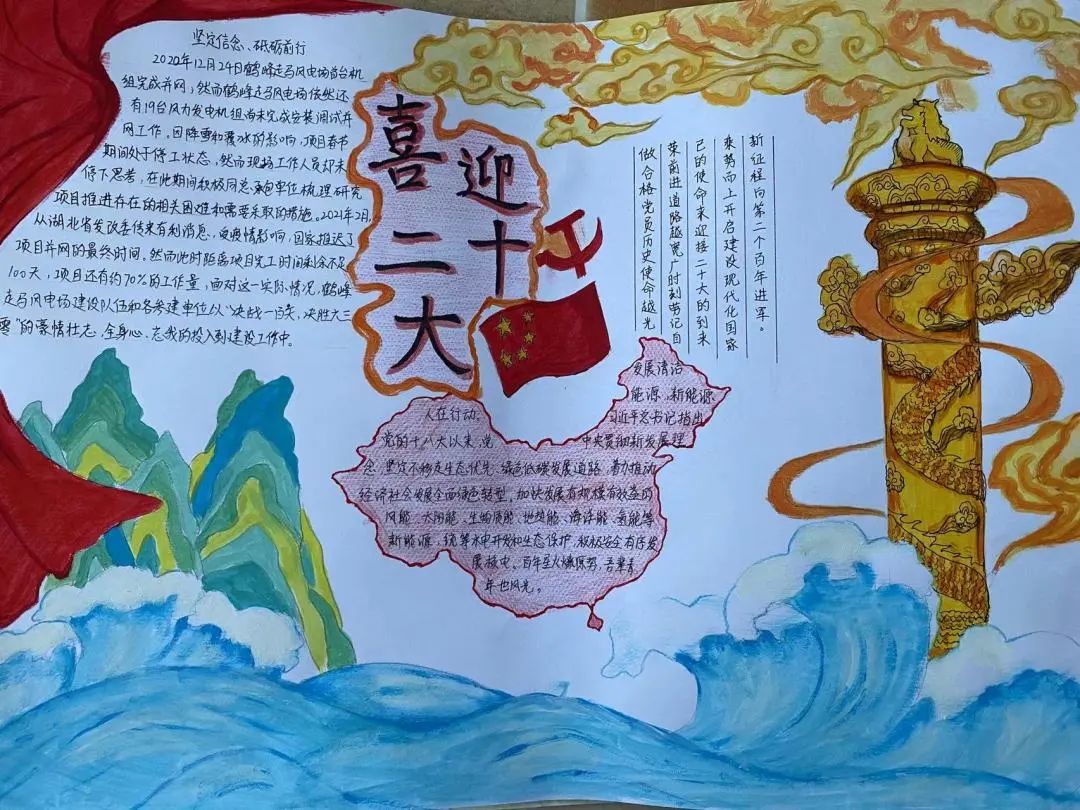 坚定信念、砥砺前行
2020年12月24日鹤峰走马风电场首台机
组完成并网，然而鹤峰走马风电场依然还
有19台风力发电机组尚未完成安装调试并
网工作。因降雪和覆冰的影响，项目春节
期间处于停工状态，然而现场工作人员却未
停下思考，在此期间积极同总承包单位梳理研究
项目推进存在的相关困难和需要采取的措施。2021年2月，
从湖北省发改委传来有利消息，受疫情影响，国家推迟了
项目并网的最终时间。然而此时距离项目完工时间剩余不足
100天，项目还有约70%的工作量，面对这一实际情况，鹤峰
走马风电场建设队伍和各参建单位以“决战一百天，决胜大三
零”的豪情壮志，全身心、忘我的投入到建设工作中。
喜迎
二十
大
新征程向第二个百年进军。
乘势而上开启建设现代化国家
己的使命来迎接二十大的到来
荣前进道路越宽广时刻书记自
做合格党员历史使命越光
发展清洁
能源，新能源
人在行动。
习近平总书记指出
党的十八大以来，党
中央贯彻新发展理
念，坚定不移走生态优先、绿色低碳发展道路，着力推动
经济社会发展全面绿色转型，加快发展有规模有效益的
风能、太阳能、生物质能、地热能、海洋能、氢能等
新能源，统筹水电开发和生态保护，积极安全有序发
展核电。百年星火燎原势，吾辈青
年也风光。